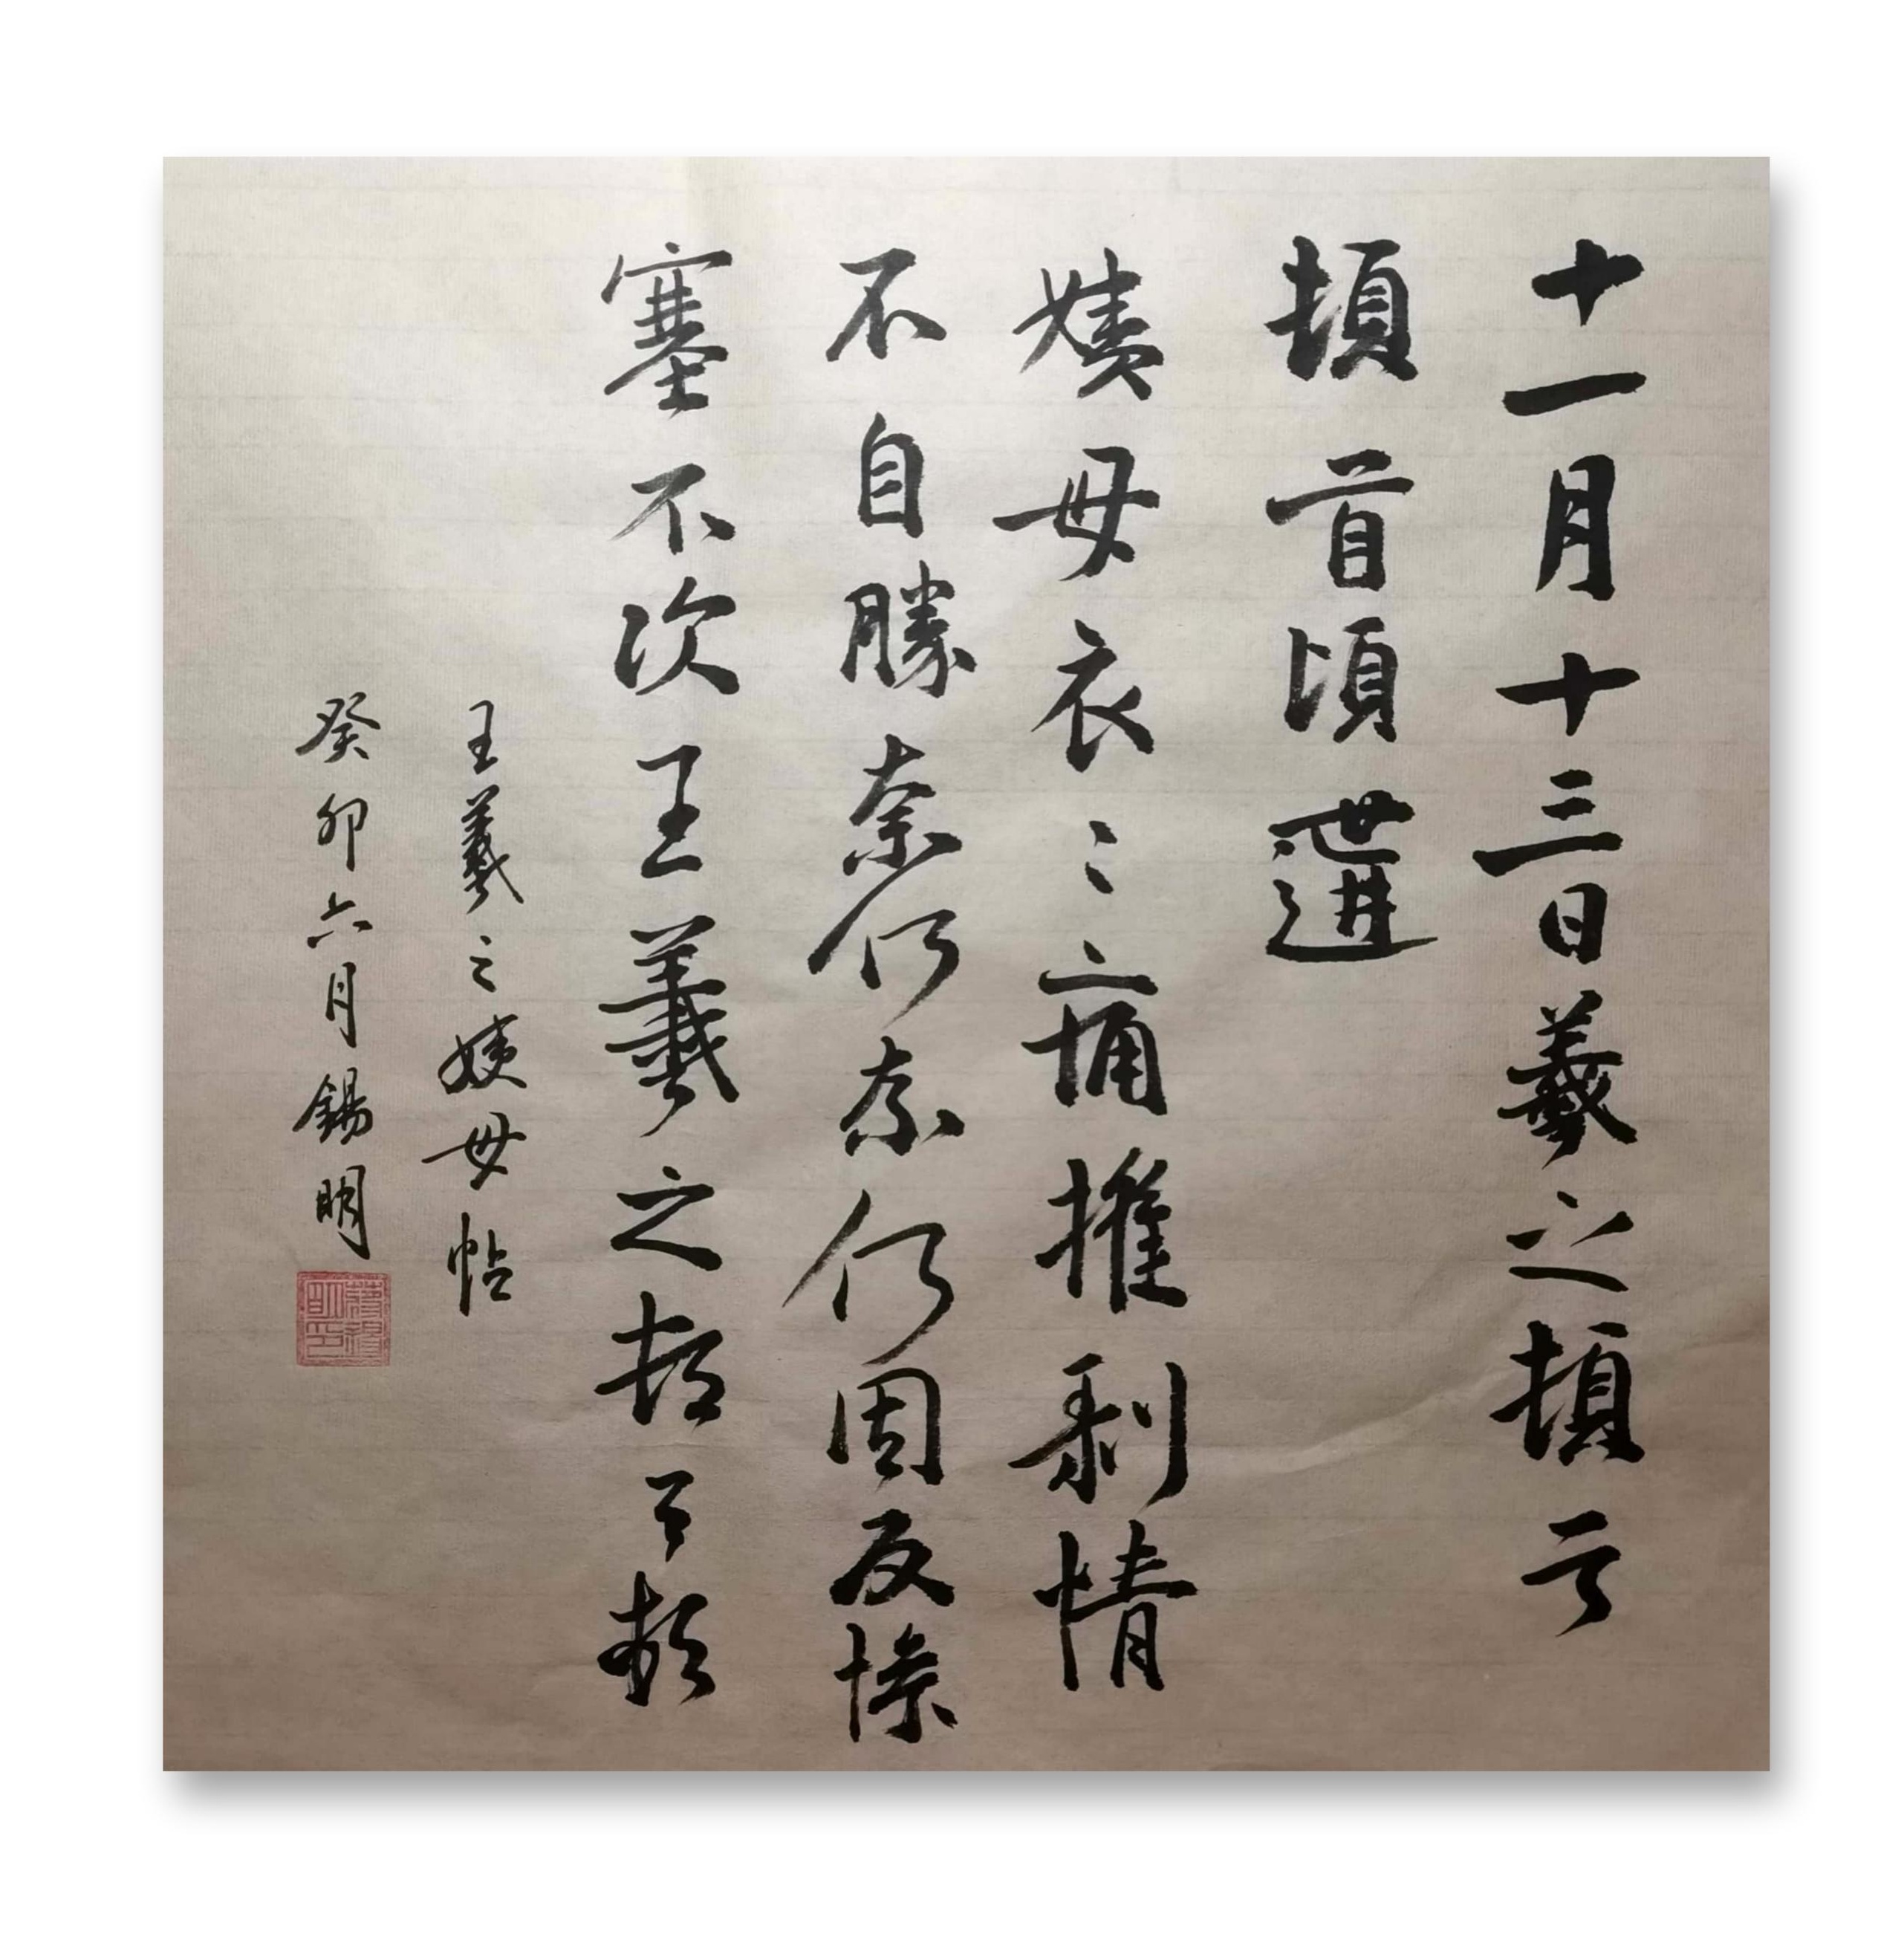 十一月十三日羲之頓首
頓首頃遘
姨母哀〻痛摧剝情
不自勝奈何奈何因反慘
塞不次王羲之頓首頓
王羲之姨母帖
癸卯六月錫明